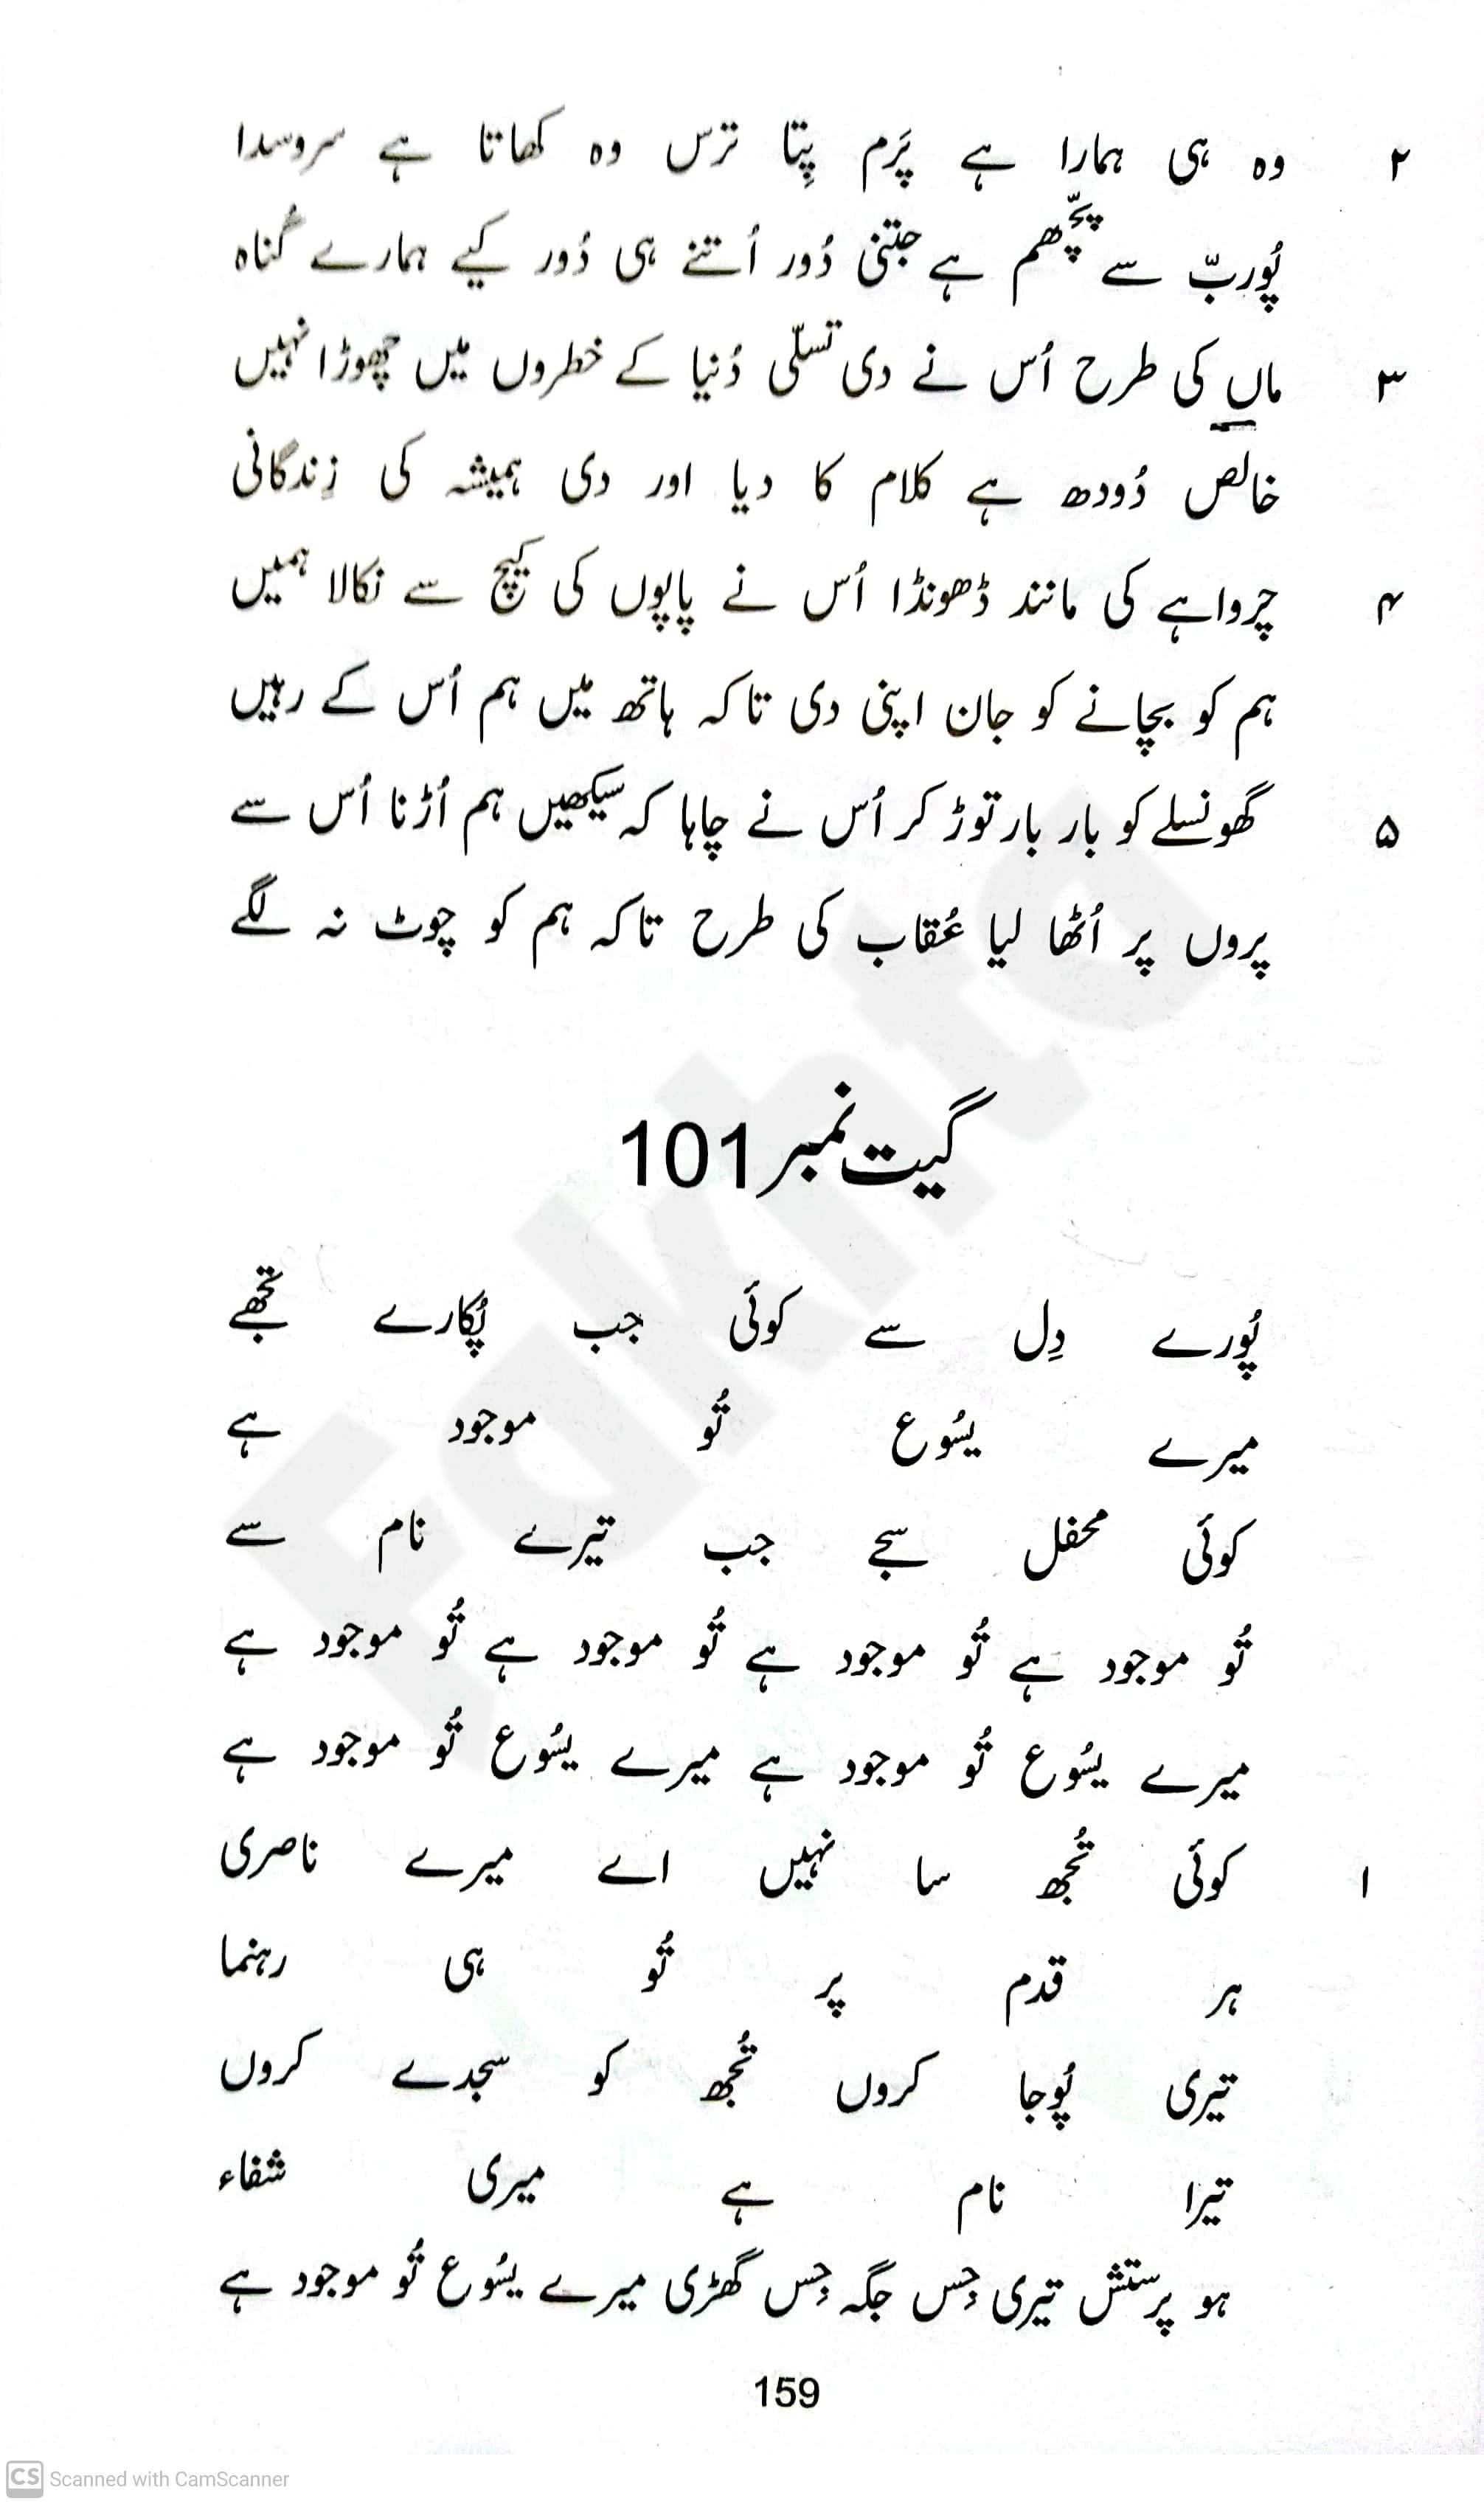 ۲ وہ ہی ہمارا ہے پَرم پِتا ترس وہ کھاتا ہے سروسدا
پُوربّ سے پچّھم ہے جتنی دُور اُتنے ہی دُور کیے ہمارے گُناہ
۳ ماں کی طرح اُس نے دی تسلّی دُنیا کے خطروں میں چھوڑا نہیں
خالص دُودھ ہے کلام کا دیا اور دی ہمیشہ کی زِندگانی
۴ چرواہے کی مانند ڈھونڈا اُس نے پاپوں کی کیچ سے نکالا ہمیں
ہم کو بچانے کو جان اپنی دی تاکہ ہاتھ میں ہم اُس کے رہیں
۵ گھونسلے کو بار بار توڑ کر اُس نے چاہا کہ سیکھیں ہم اُڑنا اُس سے
پروں پر اُٹھا لیا عُقاب کی طرح تاکہ ہم کو چوٹ نہ لگے
گیت نمبر 101
پُورے دِل سے کوئی جب پُکارے تجھے
میرے یسُوع تُو موجود ہے
کوئی محفل سجے جب تیرے نام سے
تُو موجود ہے تُو موجود ہے تُو موجود ہے تُو موجود ہے
میرے یسُوع تُو موجود ہے میرے یسُوع تُو موجود ہے
۱ کوئی تُجھ سا نہیں اے میرے ناصری
ہر قدم پر تُو ہی رہنما
تیری پُوجا کروں تُجھ کو سجدے کروں
تیرا نام ہے میری شفاء
ہو پرستش تیری جِس جگہ جِس گھڑی میرے یسُوع تُو موجود ہے
159
Fakhta
CS Scanned with CamScanner